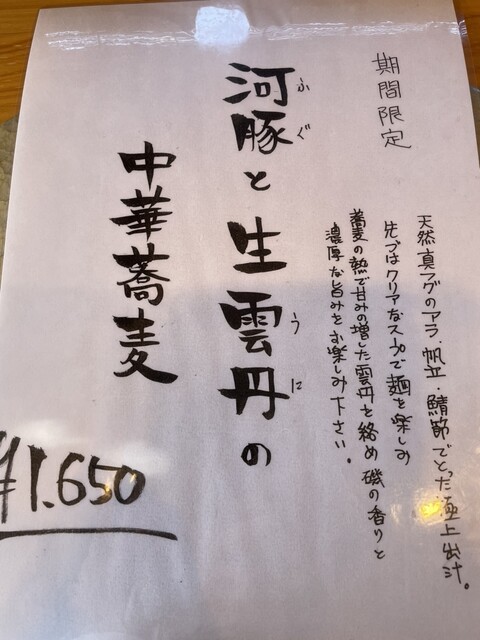 期間限定
天然真フグのアラ、帆立・鯖節でとった極上出汁。
先づはクリアなスープで麺を楽しみ
蕎麦の熱で甘みの増した雲丹と絡め磯の香りと
濃厚な旨みをお楽しみ下さい。
河豚と生雲丹の
ふぐ
うに
中華蕎麦
¥1.650